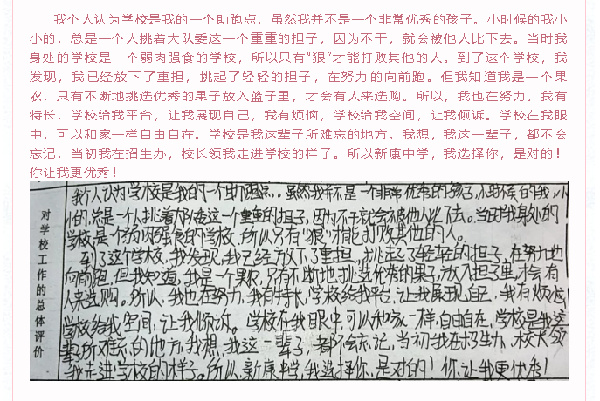 我个人认为学校是我的一个助跑点，虽然我并不是一个非常优秀的孩子。小时候的我小
小的，总是一个人挑着大队委这一个重重的担子，因为不干，就会被他人比下去。当时我
身处的学校是一个弱肉强食的学校，所以只有"狠"才能打败其他的人。到了这个学校，我
发现，我已经放下了重担，挑起了轻轻的担子，在努力的向前跑。但我知道我是一个果
农，只有不断地挑选优秀的果子放入篮子里，才会有人来选购。所以，我也在努力。我有
特长，学校给我平台，让我展现自己，我有烦恼，学校给我空间，让我倾诉。学校在我眼
中，可以和家一样自由自在。学校是我这辈子所难忘的地方，我想，我这一辈子，都不会
忘记，当初我在招生办，校长领我走进学校的样子。所以新康中学，我选择你，是对的！
你让我更优秀！
对学校工作的总体评价
我个人认为学校是我的一个助跑点，虽然我并不是一个非常优秀的孩子，小时候的我，小
小的，总是一个人挑着大队委这一个重重的担子，因为不干就会被他人比下去。当时我身处的
学校是一个弱肉强食的学校，所以只有"狠"才能打败其他的人。
到了这个学校，我发现，我已经放下了重担，挑起了轻轻的担子，在努力地
向前跑，但我知道，我是一个果农，只有不断地挑选优秀的果子放入担子里，才会有
人来选购。所以，我也在努力，我有特长，学校给我平台，让我展现自己，我有烦恼，
学校给我空间，让我倾诉。学校在我眼中，可以和家一样，自由自在，学校是我这
辈子所难忘的地方，我想，我这一辈子，都不会忘记，当初我在招生办，校长领
我走进学校的样子。所以，新康中学，我选择你，是对的！你，让我更优秀！